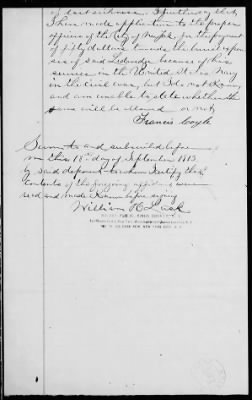 of last sickness. I further say that
I have made application to the proper
officers of the City of New York for the payment
of fifty dollars towards the burial expen-
ses of said because of his
service in the United States Navy
in the Civil War, but I do not know
and am unable to state whether the
same will be allowed or not.
Francis Coyle
Sworn to and subscribed before
me this 18th day of September 1913
by said deponent to whom I certify that
contents of the foregoing affidavit were
read and made known before signing
William H. Lusk
NOTARY PUBLIC, KINGS COUNTY, N.Y.